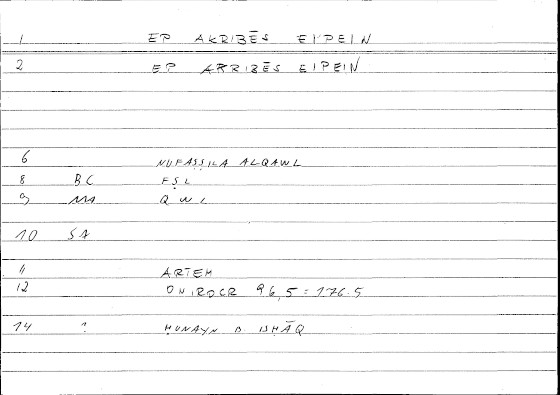 1 EP AKRIBĒS EIPEIN
2 EP AKRIBĒS EIPEIN
6 NUFAṢṢILA ALQAWL
8 BC FṢL
9 MA QWL
10 SA
11 ARTEM
12 ONIROCR 96,5 = 176.5
14 ? ḤUNAYN B. ISḤĀQ